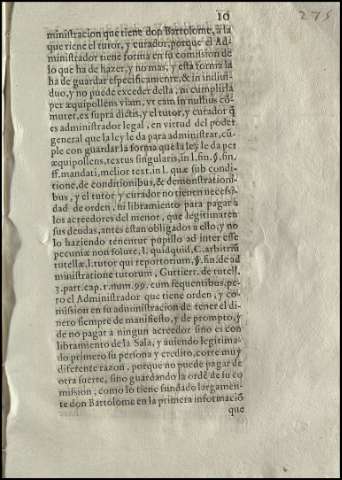 10
275
ministracion que tiene don Bartolome, a la
que tiene el tutor, y curador, porque el Ad-
ministrador tiene forma en su comission de
lo que ha de hazer, y no mas, y esta forma la
ha de guardar especificamente, & in indiui-
duo, y no puede exceder della, ni cumplirla
per æquipollens viam, vt eam in nullius cõ-
mutet, ex supra dictis, y el tutor, y curador q̃
es administrador legal, en virtud del poder
general que la ley le da para administrar, cũ-
ple con guardar la forma que la ley le da per
æquipollens, textus singularis, in l. fin. §. fin.
ff. mandati, melior text. in l. quæ sub condi-
tione, de conditionibus, & demonstrationi-
bus, y el tutor y curador no tienen necessi-
dad de orden, ni libramiento para pagar à
los acreedores del menor, que legitimaren
sus deudas, antes estan obligados a ello, y no
lo haziendo tenentur pupillo ad interesse
pecuniæ non solutæ, l. quidquid, C. arbitriũ
tutellæ, l. tutor qui reportorium, §. fin. de ad
ministratione tutorum, Gutierr. de tutell.
3. part. cap. 1. num. 99. cum sequentibus, pe-
ro el Administrador que tiene orden, y co-
mission en su administracion de tener el di-
nero siempre de manifiesto, y de prompto, y
de no pagar a ningun acreedor sino es con
libramiento de la Sala, y auiendo legitima-
do primero su persona y credito, corre muy
diferente razon, porque no puede pagar de
otra suerte, sino guardando la ordẽ de su co
mission, como lo tiene fundado largamen-
te don Bartolome en la primera informació
que